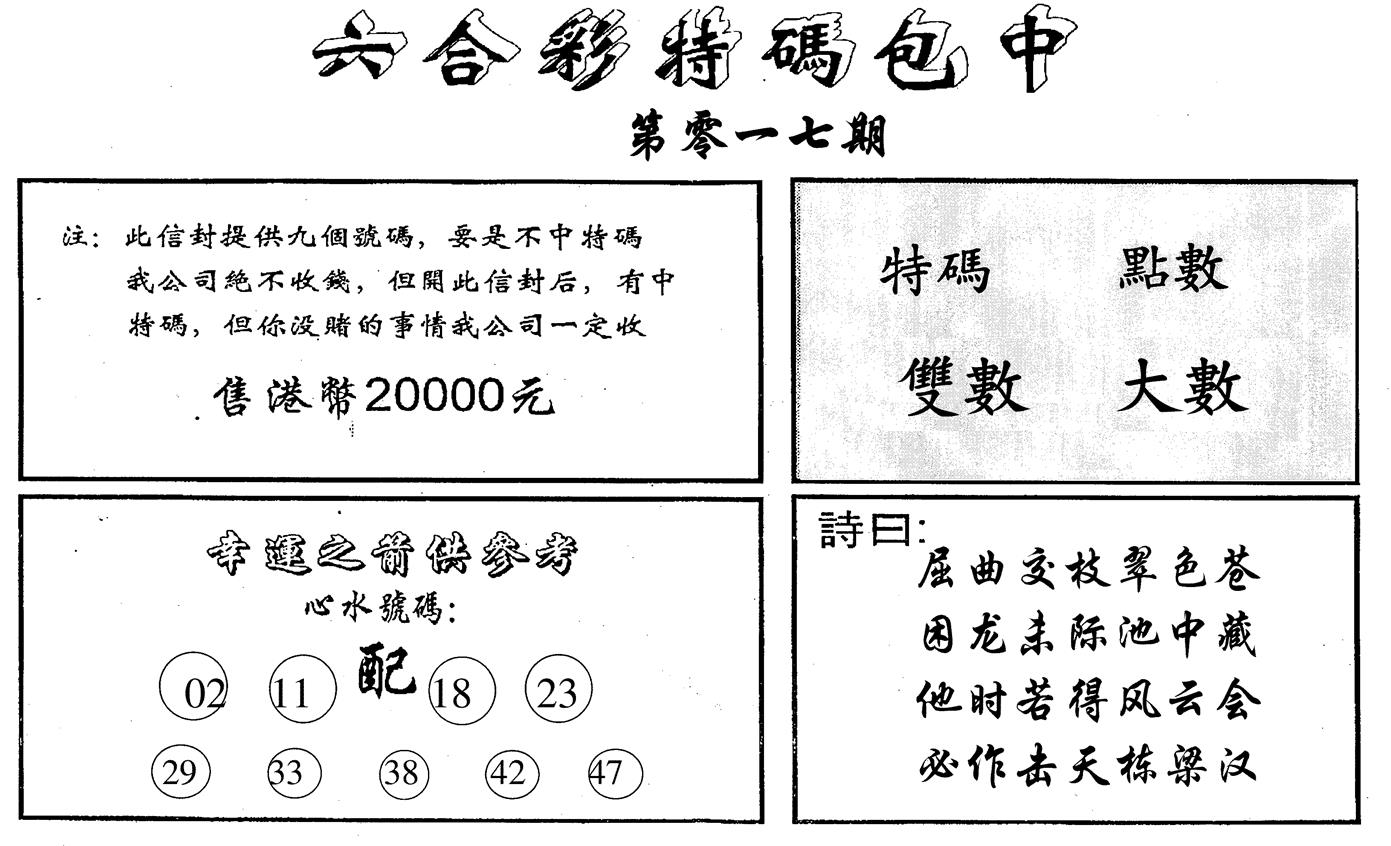 六合彩特碼包中
第零一七期
注：此信封提供九個號碼，要是不中特碼
我公司絕不收錢，但開此信封后，有中
特碼，但你没賭的事情我公司一定收
售港幣20000元
特碼 點數
雙數 大數
幸運之箭供參考
心水號碼：
02 11 配 18 23
29 33 38 42 47
詩曰：
屈曲交枝翠色苍
困龙未际池中藏
他时若得风云会
必作击天栋梁汉